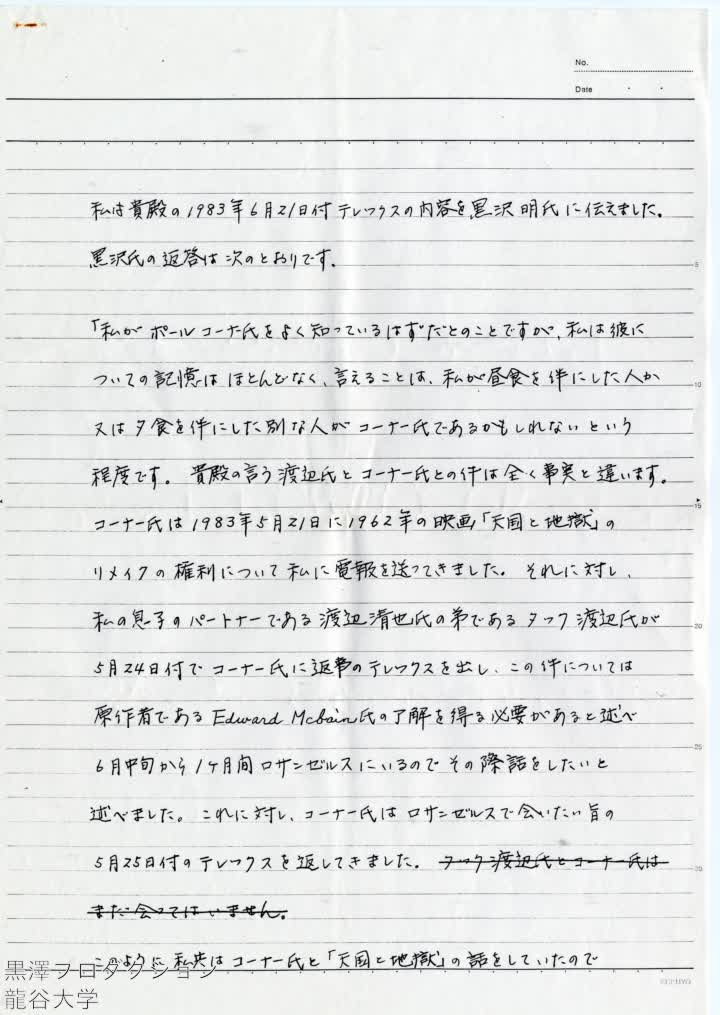 No.
Date
私は貴殿の1983年6月21日付テレックスの内容を黒沢明氏に伝えました。
黒沢氏の返答は次のとおりです。
「私がポールコーナー氏をよく知っているはずだとのことですが、私は彼に
ついての記憶はほとんどなく、言えることは、私が昼食を伴にした人か
又は夕食を伴にした別な人がコーナー氏であるかもしれないという
程度です。貴殿の言う渡辺氏とコーナー氏との件は全く事実と違います。
コーナー氏は1983年5月21日に1962年の映画「天国と地獄」の
リメイクの権利について私に電報を送ってきました。それに対し、
私の息子のパートナーである渡辺清也氏の弟であるタック渡辺氏が
5月24日付でコーナー氏に返事のテレックスを出し、この件については
原作者であるEdward Mcbain氏の了解を得る必要があると述べ
6月中旬から1ヶ月間ロサンゼルスにいるのでその際話をしたいと
述べました。これに対し、コーナー氏はロサンゼルスで会いたい旨の
5月25日付のテレックスを返してきました。タック渡辺氏とコーナー氏は
まだ会ってはいません。
このように私共はコーナー氏と「天国と地獄」の話をしていたので
黒澤プロダクション
龍谷大学
5
10
15
20
25
30